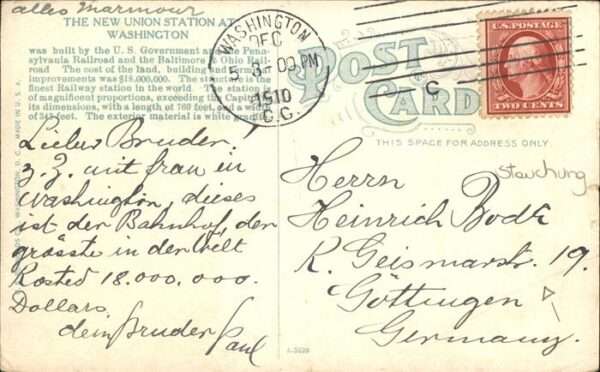 alles Marmour
THE NEW UNION STATION AT
WASHINGTON
was built by the U. S. Government and the Penn-
sylvania Railroad and the Baltimore & Ohio Rail-
road The cost of the land, building and terminal
improvements was $18,000,000. The structure is the
finest Railway station in the world. The station is
of magnificent proportions, exceeding the Capitol in
its dimensions, with a length of 760 feet, and a width
of 343 feet. The exterior material is white granite.
Lieber Bruder.
z. Z. mit frau in
Washington, dieses
ist der Bahnhof, der
grösste in der Welt
Kosted 18.000,000.
Dollars.
dein Bruder Paul
WASHINGTON, D. C. MADE IN U. S. A.
WASHINGTON
DEC
5
3 00 PM
1910
D.C.
C
POST
CARD
U.S. POSTAGE
TWO CENTS
THIS SPACE FOR ADDRESS ONLY
Stauchung
Herrn
Heinrich Bode
K. Geismarstr. 19.
Göttingen
Germany.